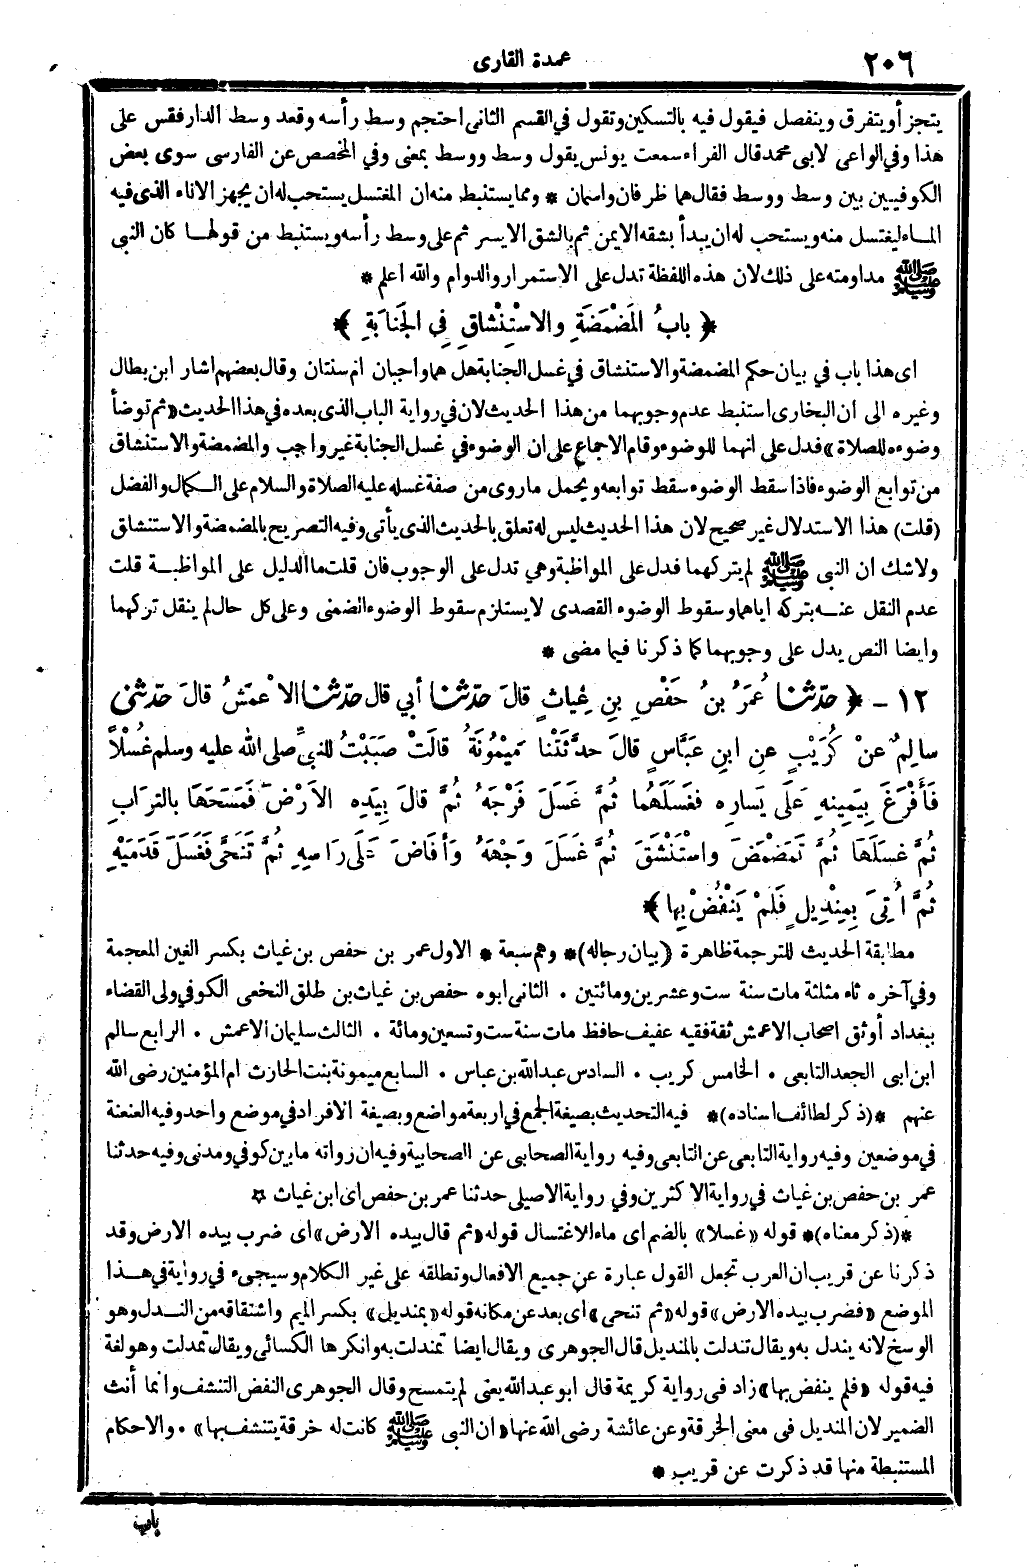 ٢٠٦ عمدة القارى
يتجزأ ويتفرق وينفصل فيقول فيه بالتسكين وتقول في القسم الثانى احتجم وسط رأسه وقعد وسط الدار فقس على
هذا وفي الواعى لابى محمد قال الفراء سمعت يونس يقول وسط ووسط بمعنى وفي المخصص عن الفارسى سوى بعض
الكوفيين بين وسط ووسط فقال هما ظرفان واسمان * ومما يستنبط منه ان المغتسل يستحب له ان يجهز الاناء الذى فيه
الماء ليغتسل منه ويستحب له ان يبدأ بشقه الايمن ثم بالشق الايسر ثم على وسط رأسه ويستنبط من قولها كان النبى
ﷺ مداومته على ذلك لان هذه اللفظة تدل على الاستمرار والدوام والله اعلم *
﴿ بابُ المَضْمَضَةِ والاسْتِنْشاقِ فِي الجَنَابَةِ ﴾
اى هذا باب في بيان حكم المضمضة والاستنشاق في غسل الجنابة هل هما واجبان ام سنتان وقال بعضهم اشار ابن بطال
وغيره الى ان البخارى استنبط عدم وجوبهما من هذا الحديث لان في رواية الباب الذى بعده في هذا الحديث «ثم توضأ
وضوءه للصلاة» فدل على انهما للوضوء وقام الاجماع على ان الوضوء في غسل الجنابة غير واجب والمضمضة والاستنشاق
من توابع الوضوء فاذا سقط الوضوء سقط توابعه ويحمل ماروى من صفة غسله عليه الصلاة والسلام على الكمال والفضل
(قلت) هذا الاستدلال غير صحيح لان هذا الحديث ليس له تعلق بالحديث الذى يأتى وفيه التصريح بالمضمضة والاستنشاق
ولاشك ان النبى ﷺ لم يتركهما فدل على المواظبة وهى تدل على الوجوب فان قلت ما الدليل على المواظبة قلت
عدم النقل عنه بتركه اياهما وسقوط الوضوء القصدى لا يستلزم سقوط الوضوء الضمنى وعلى كل حال لم ينقل تركهما
وايضا النص يدل على وجوبهما كما ذكرنا فيما مضى *
١٢ - ﴿ حدّثنا عُمَرُ بنُ حَفْصِ بنِ غِياثٍ قالَ حدّثنا أبي قال حدّثنا الاعْمَشُ قالَ حدّثني
سالِمٌ عنْ كُرَيْبٍ عنِ ابنِ عَبَّاسٍ قالَ حدَّثَتْنا مَيْمُونَةُ قالَتْ صَبَبْتُ للنبيِّ صلى الله عليه وسلم غُسْلاً
فَأَفْرَغَ بِيَمِينِهِ عَلَى يَسارِهِ فغَسَلَهُما ثُمَّ غَسَلَ فَرْجَهُ ثُمَّ قالَ بِيَدِهِ الأَرْضَ فَمَسَحَهَا بالتُّرَابِ
ثُمَّ غَسَلَهَا ثُمَّ تَمَضْمَضَ واسْتَنْشَقَ ثُمَّ غَسَلَ وَجْهَهُ وَأفَاضَ عَلَى رَاسِهِ ثُمَّ تَنَحَّى فَغَسَلَ قَدَمَيْهِ
ثُمَّ أُتِىَ بِمِنْدِيلٍ فَلَمْ يَنْفُضْ بِها ﴾*
مطابقة الحديث للترجمة ظاهرة (بيان رجاله)* وهم سبعة * الاول عمر بن حفص بن غياث بكسر الغين المعجمة
وفي آخره ثاء مثلثة مات سنة ست وعشرين ومائتين . الثانى ابوه حفص بن غياث بن طلق النخعى الكوفي ولى القضاء
ببغداد أوثق اصحاب الاعمش ثقة فقيه عفيف حافظ مات سنة ست وتسعين ومائة . الثالث سليمان الاعمش . الرابع سالم
ابن ابى الجعد التابعى . الخامس كريب . السادس عبد الله بن عباس . السابع ميمونة بنت الحارث ام المؤمنين رضى الله
عنهم *(ذكر لطائف اسناده)* فيه التحديث بصيغة الجمع في اربعة مواضع وبصيغة الافراد في موضع واحد وفيه العنعنة
في موضعين وفيه رواية التابعى عن التابعى وفيه رواية الصحابى عن الصحابية وفيه ان رواته ما بين كوفي ومدنى وفيه حدثنا
عمر بن حفص بن غياث في رواية الاكثرين وفي رواية الاصيلى حدثنا عمر بن حفص اى ابن غياث ✡
*(ذكر معناه)* قوله «غسلا» بالضم اى ماء الاغتسال قوله «ثم قال بيده الارض» اى ضرب بيده الارض وقد
ذكرنا عن قريب ان العرب تجعل القول عبارة عن جميع الافعال وتطلقه على غير الكلام وسيجىء في رواية في هذا
الموضع «فضرب بيده الارض» قوله «ثم تنحى» اى بعد عن مكانه قوله «بمنديل» بكسر الميم واشتقاقه من الندل وهو
الوسخ لانه يندل به ويقال تندلت بالمنديل قال الجوهرى ويقال ايضا تمندلت به وانكرها الكسائى ويقال تمدلت وهو لغة
فيه قوله «فلم ينفض بها» زاد فى رواية كريمة قال ابو عبد الله يعنى لم يتمسح وقال الجوهرى النفض التنشف وانما أنث
الضمير لان المنديل فى معنى الخرقة وعن عائشة رضى الله عنها «ان النبى ﷺ كانت له خرقة يتنشف بها» . والاحكام
المستنبطة منها قد ذكرت عن قريب *
باب